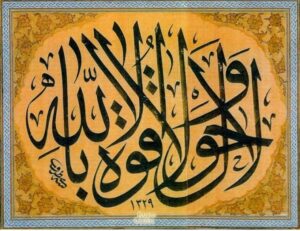 لا حول ولا قوة إلا بالله
١٣٢٩